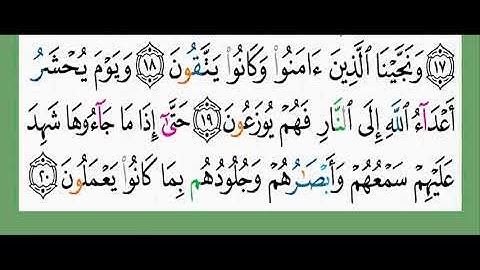 ﴿١٧﴾ وَنَجَّيْنَا ٱلَّذِينَ ءَامَنُوا۟ وَكَانُوا۟ يَتَّقُونَ ﴿١٨﴾ وَيَوْمَ يُحْشَرُ
أَعْدَآءُ ٱللَّهِ إِلَى ٱلنَّارِ فَهُمْ يُوزَعُونَ ﴿١٩﴾ حَتَّىٰٓ إِذَا مَا جَآءُوهَا شَهِدَ
عَلَيْهِمْ سَمْعُهُمْ وَأَبْصَـٰرُهُمْ وَجُلُودُهُم بِمَا كَانُوا۟ يَعْمَلُونَ ﴿٢٠﴾